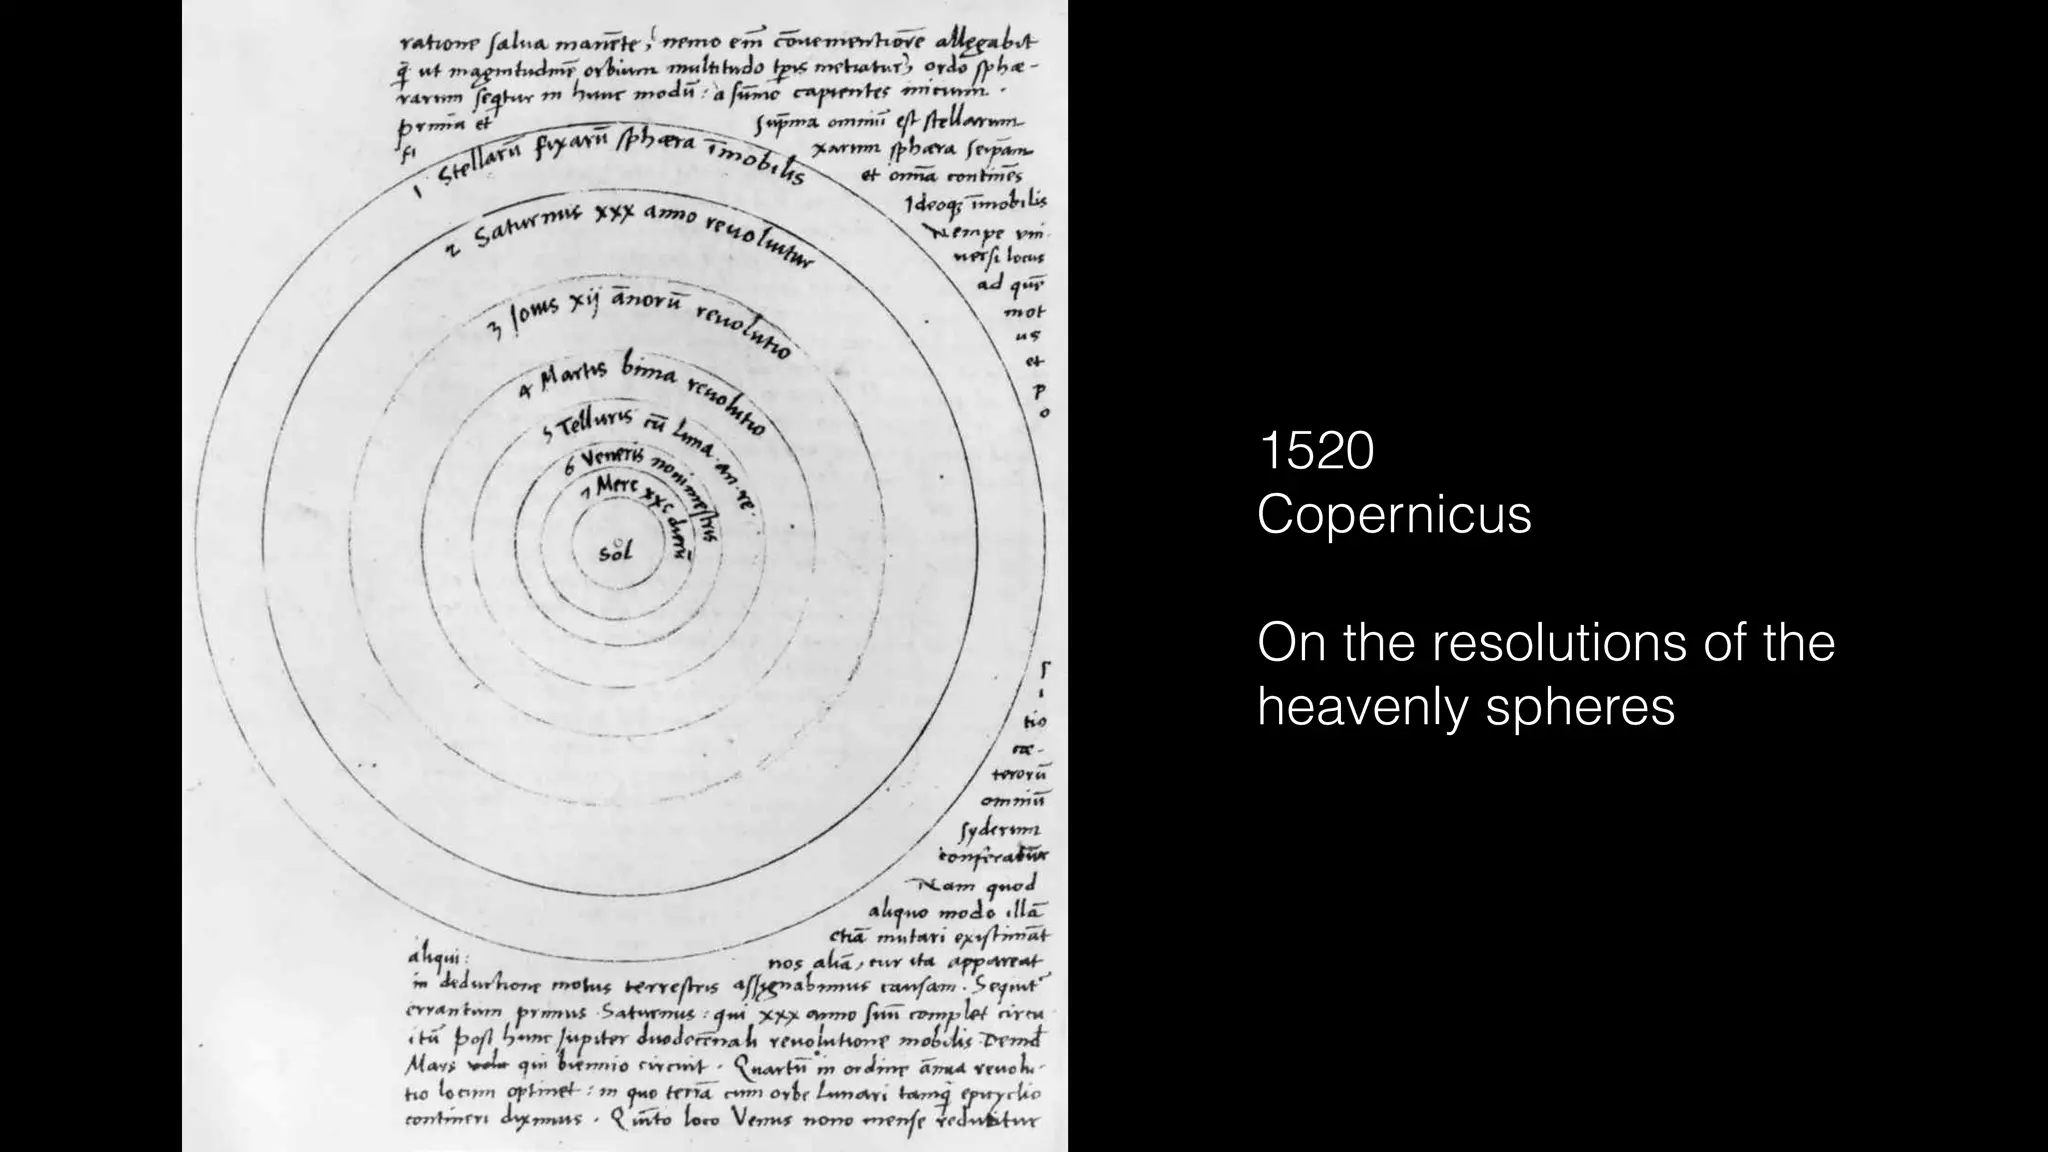 ratione salua manēte, nemo em̄ cōuementiorē allęgabit
q̄ ut magnitudinē orbium multitudo tp̄is metiatur, ordo sphæ-
rarum seq̄tur in hunc modū: a sūmo capientes inicium.
prima et Sup̄ma omniū est stellarum
fi xarum sphæra seip̄am
et omīa continēs
Ideoq; īmobilis
Nempe uni
uersi locus
ad quē
mot
us
et
p
o
1 Stellarū fixarū sphæra īmobilis
2 Saturnus xxx anno reuoluitur
3 Iouis xij ānorū reuolutio
4 Martis bima reuolutio
5 Telluris cū Luna an. re.
6 Veneris nonimestris
7 Merc xxc dierū
Sol
s
i
tio
cæ-
terorū
omniū
syderum
conferatur
Nam quod
aliquo modo illā
etiā mutari existimāt
aliqui: nos aliā, cur ita appareat
in deductione motus terrestris assignabimus causam. Sequit
errantium primus Saturnus: qui xxx anno suū complet circu
itū post hunc Iupiter duodecēnali reuolutione mobilis Deind
Mars qui biennio circuit. Quartū in ordine ānua reuolu-
tio locum optinet: in quo terrā cum orbe Lunari tamq̄ epicyclio
contineri diximus. Quīto loco Venus nono mense reducitur
1520
Copernicus
On the resolutions of the
heavenly spheres